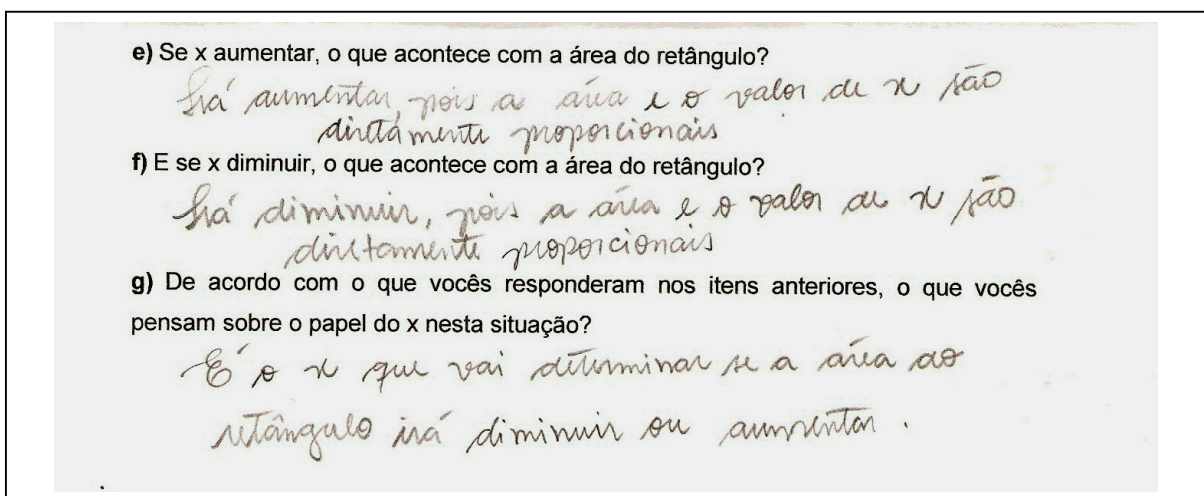 e) Se x aumentar, o que acontece com a área do retângulo?
Irá aumentar, pois a área e o valor de x são
diretamente proporcionais
f) E se x diminuir, o que acontece com a área do retângulo?
Irá diminuir, pois a area e o valor de x são
diretamente proporcionais
g) De acordo com o que vocês responderam nos itens anteriores, o que vocês
pensam sobre o papel do x nesta situação?
É o x que vai determinar se a área do
retângulo irá diminuir ou aumentar.